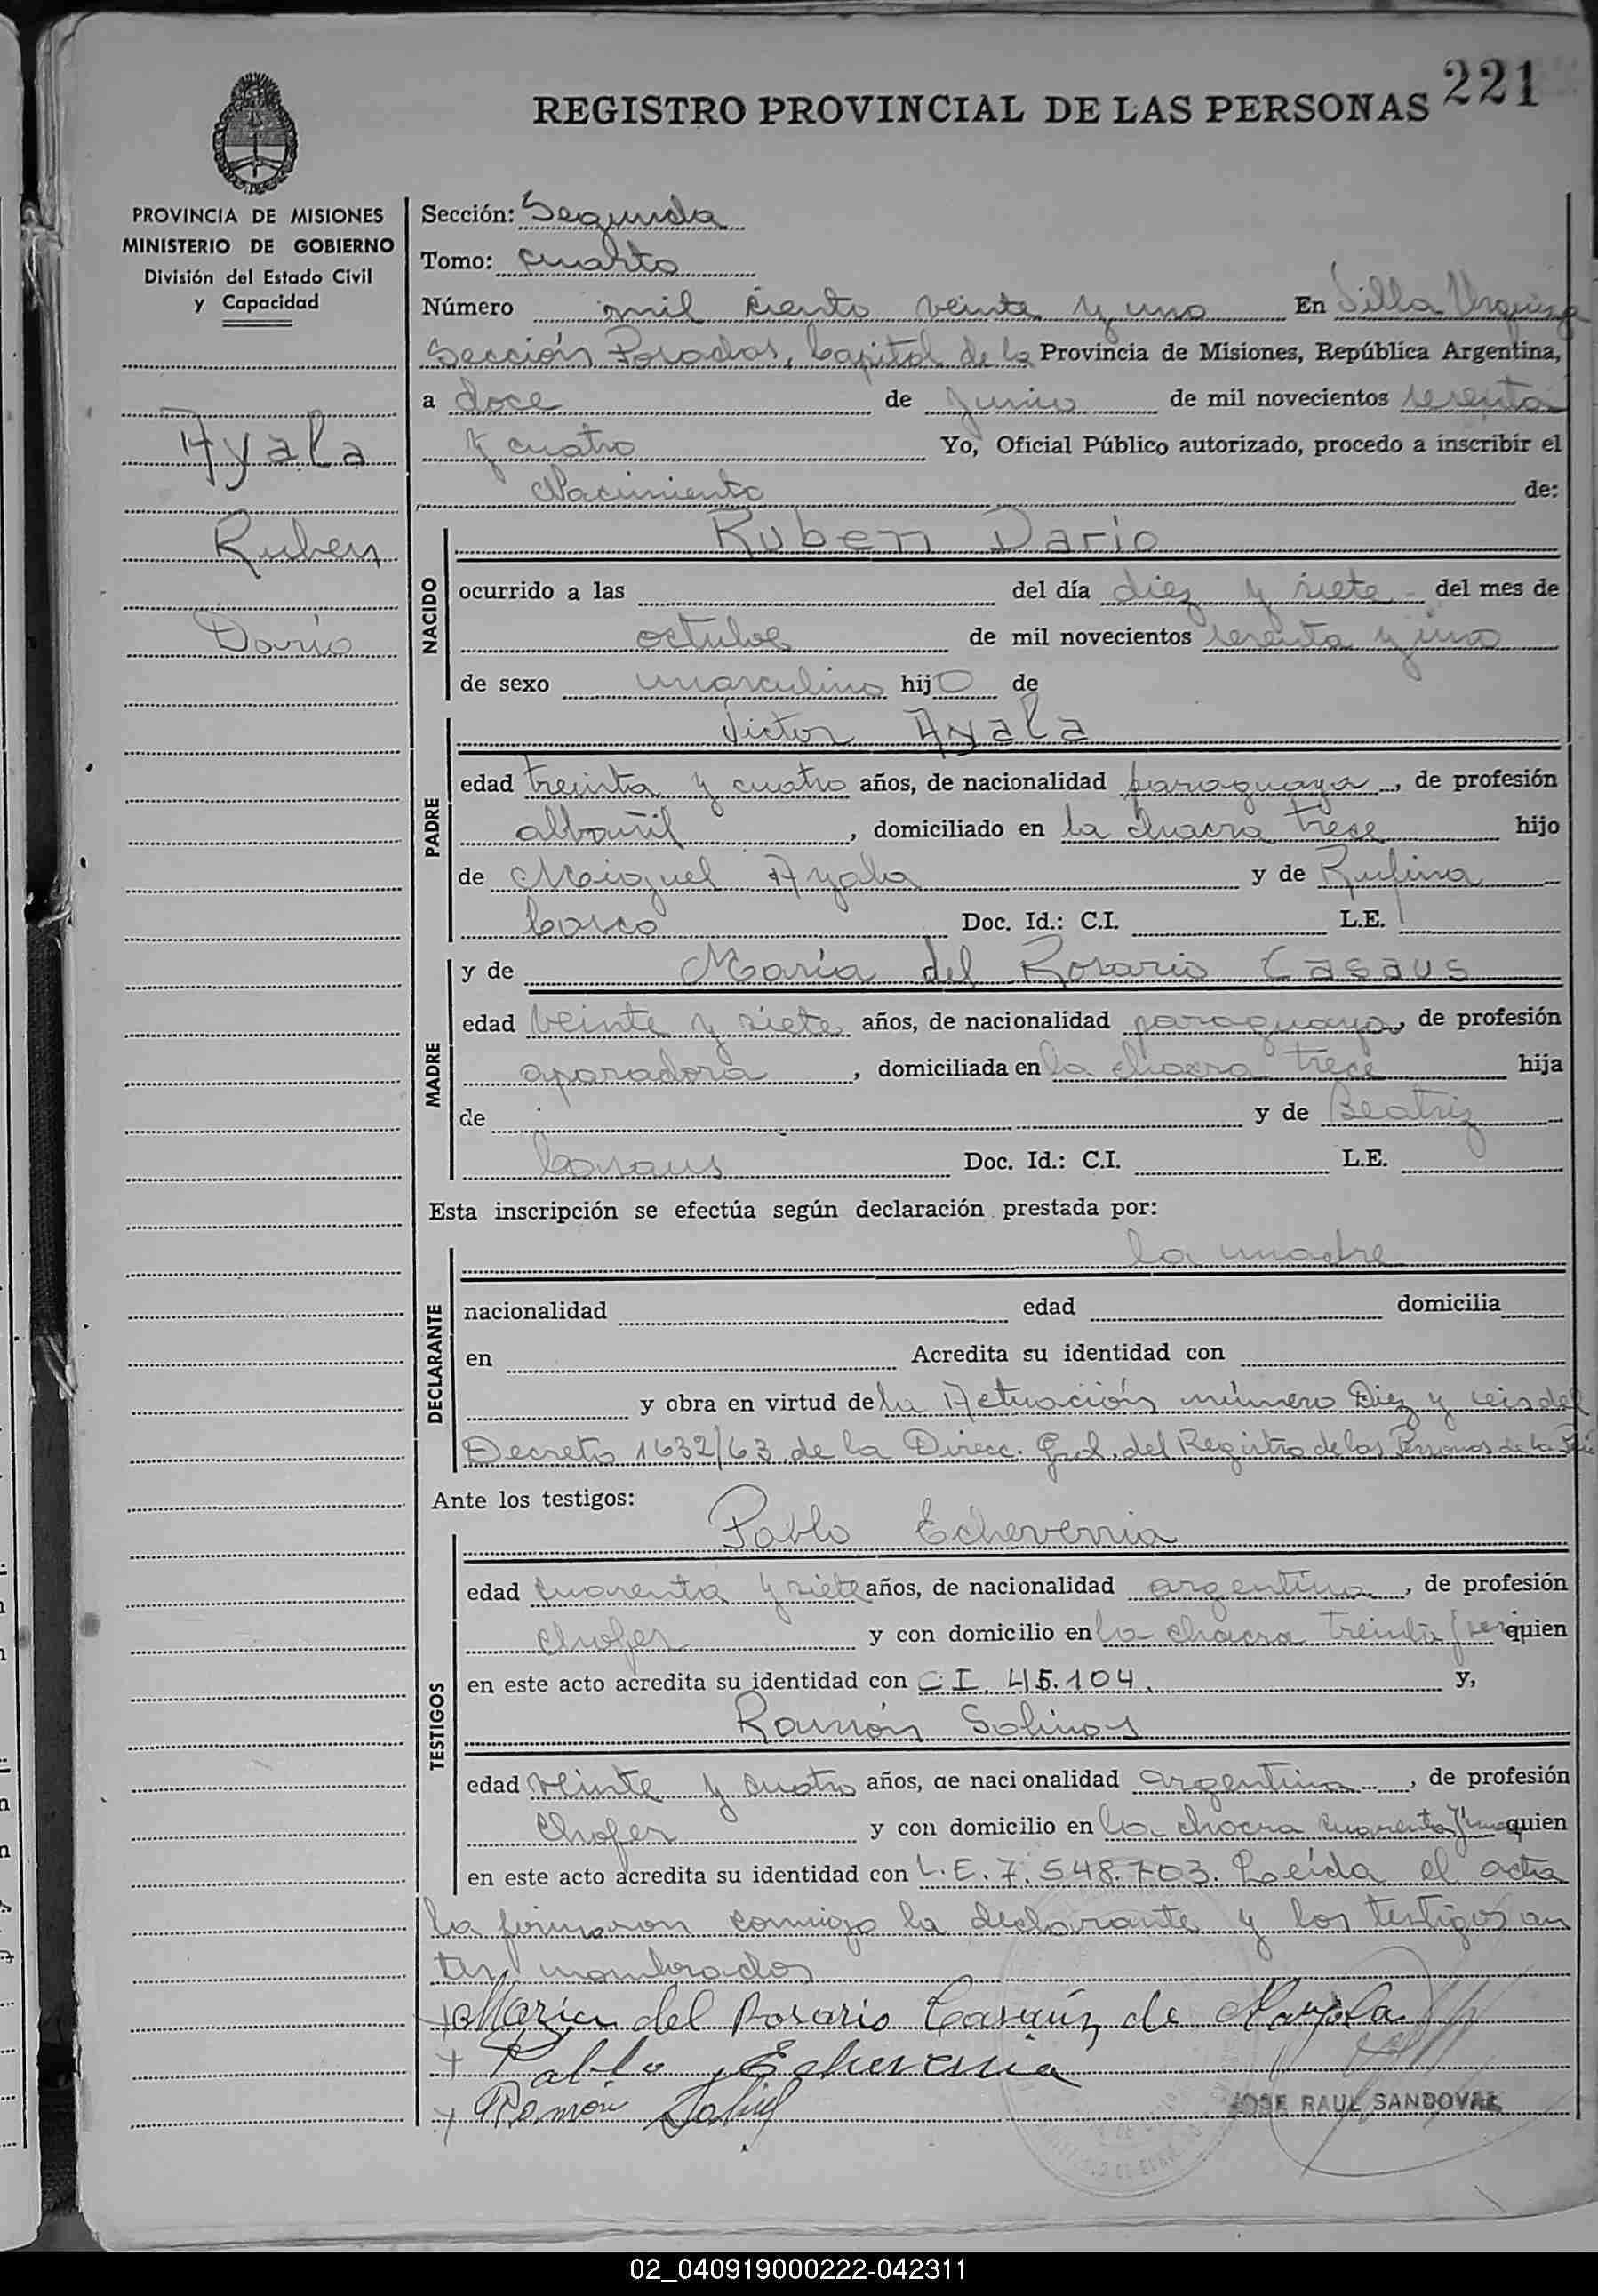 221
REGISTRO PROVINCIAL DE LAS PERSONAS
PROVINCIA DE MISIONES
MINISTERIO DE GOBIERNO
División del Estado Civil
y Capacidad
Ayala
Ruben
Dario
Sección: Segunda
Tomo: cuarto
Número mil ciento veinte y uno En Villa Urquiza
Sección Posadas, Capital de la Provincia de Misiones, República Argentina,
a doce de junio de mil novecientos setenta
y cuatro Yo, Oficial Público autorizado, procedo a inscribir el
Nacimiento de:
NACIDO
Ruben Dario
ocurrido a las del día diez y siete del mes de
octubre de mil novecientos setenta y uno
de sexo masculino hijo de
PADRE
Victor Ayala
edad treinta y cuatro años, de nacionalidad paraguaya, de profesión
albañil, domiciliado en la chacra trece hijo
de Miguel Ayala y de Rufina
Doc. Id.: C.I. L.E.
MADRE
y de María del Rosario Casaus
edad veinte y siete años, de nacionalidad paraguaya, de profesión
aparadora, domiciliada en la chacra trece hija
de y de Beatriz
Casaus Doc. Id.: C.I. L.E.
Esta inscripción se efectúa según declaración prestada por:
DECLARANTE
la madre
nacionalidad edad domicilia
en Acredita su identidad con
y obra en virtud de la Actuación número Diez y seis del
Decreto 1632/63 de la Direcc. Gral. del Registro de las Personas de la
Ante los testigos:
TESTIGOS
Pablo Echeverria
edad cuarenta y siete años, de nacionalidad argentina, de profesión
chofer y con domicilio en la chacra treinta quien
en este acto acredita su identidad con C.I. 45.104. y,
Ramón Solinas
edad veinte y cuatro años, de nacionalidad argentina, de profesión
chofer y con domicilio en la chacra cuarenta quien
en este acto acredita su identidad con L.E. 7.548.703. Leída el acta
la firmaron conmigo la declarante y los testigos an
tes nombrados
+ Maria del Rosario Casaús de Ayala
+ Pablo Echeverria
+ Ramón
JOSE RAUL SANDOVAL
02_040919000222-042311